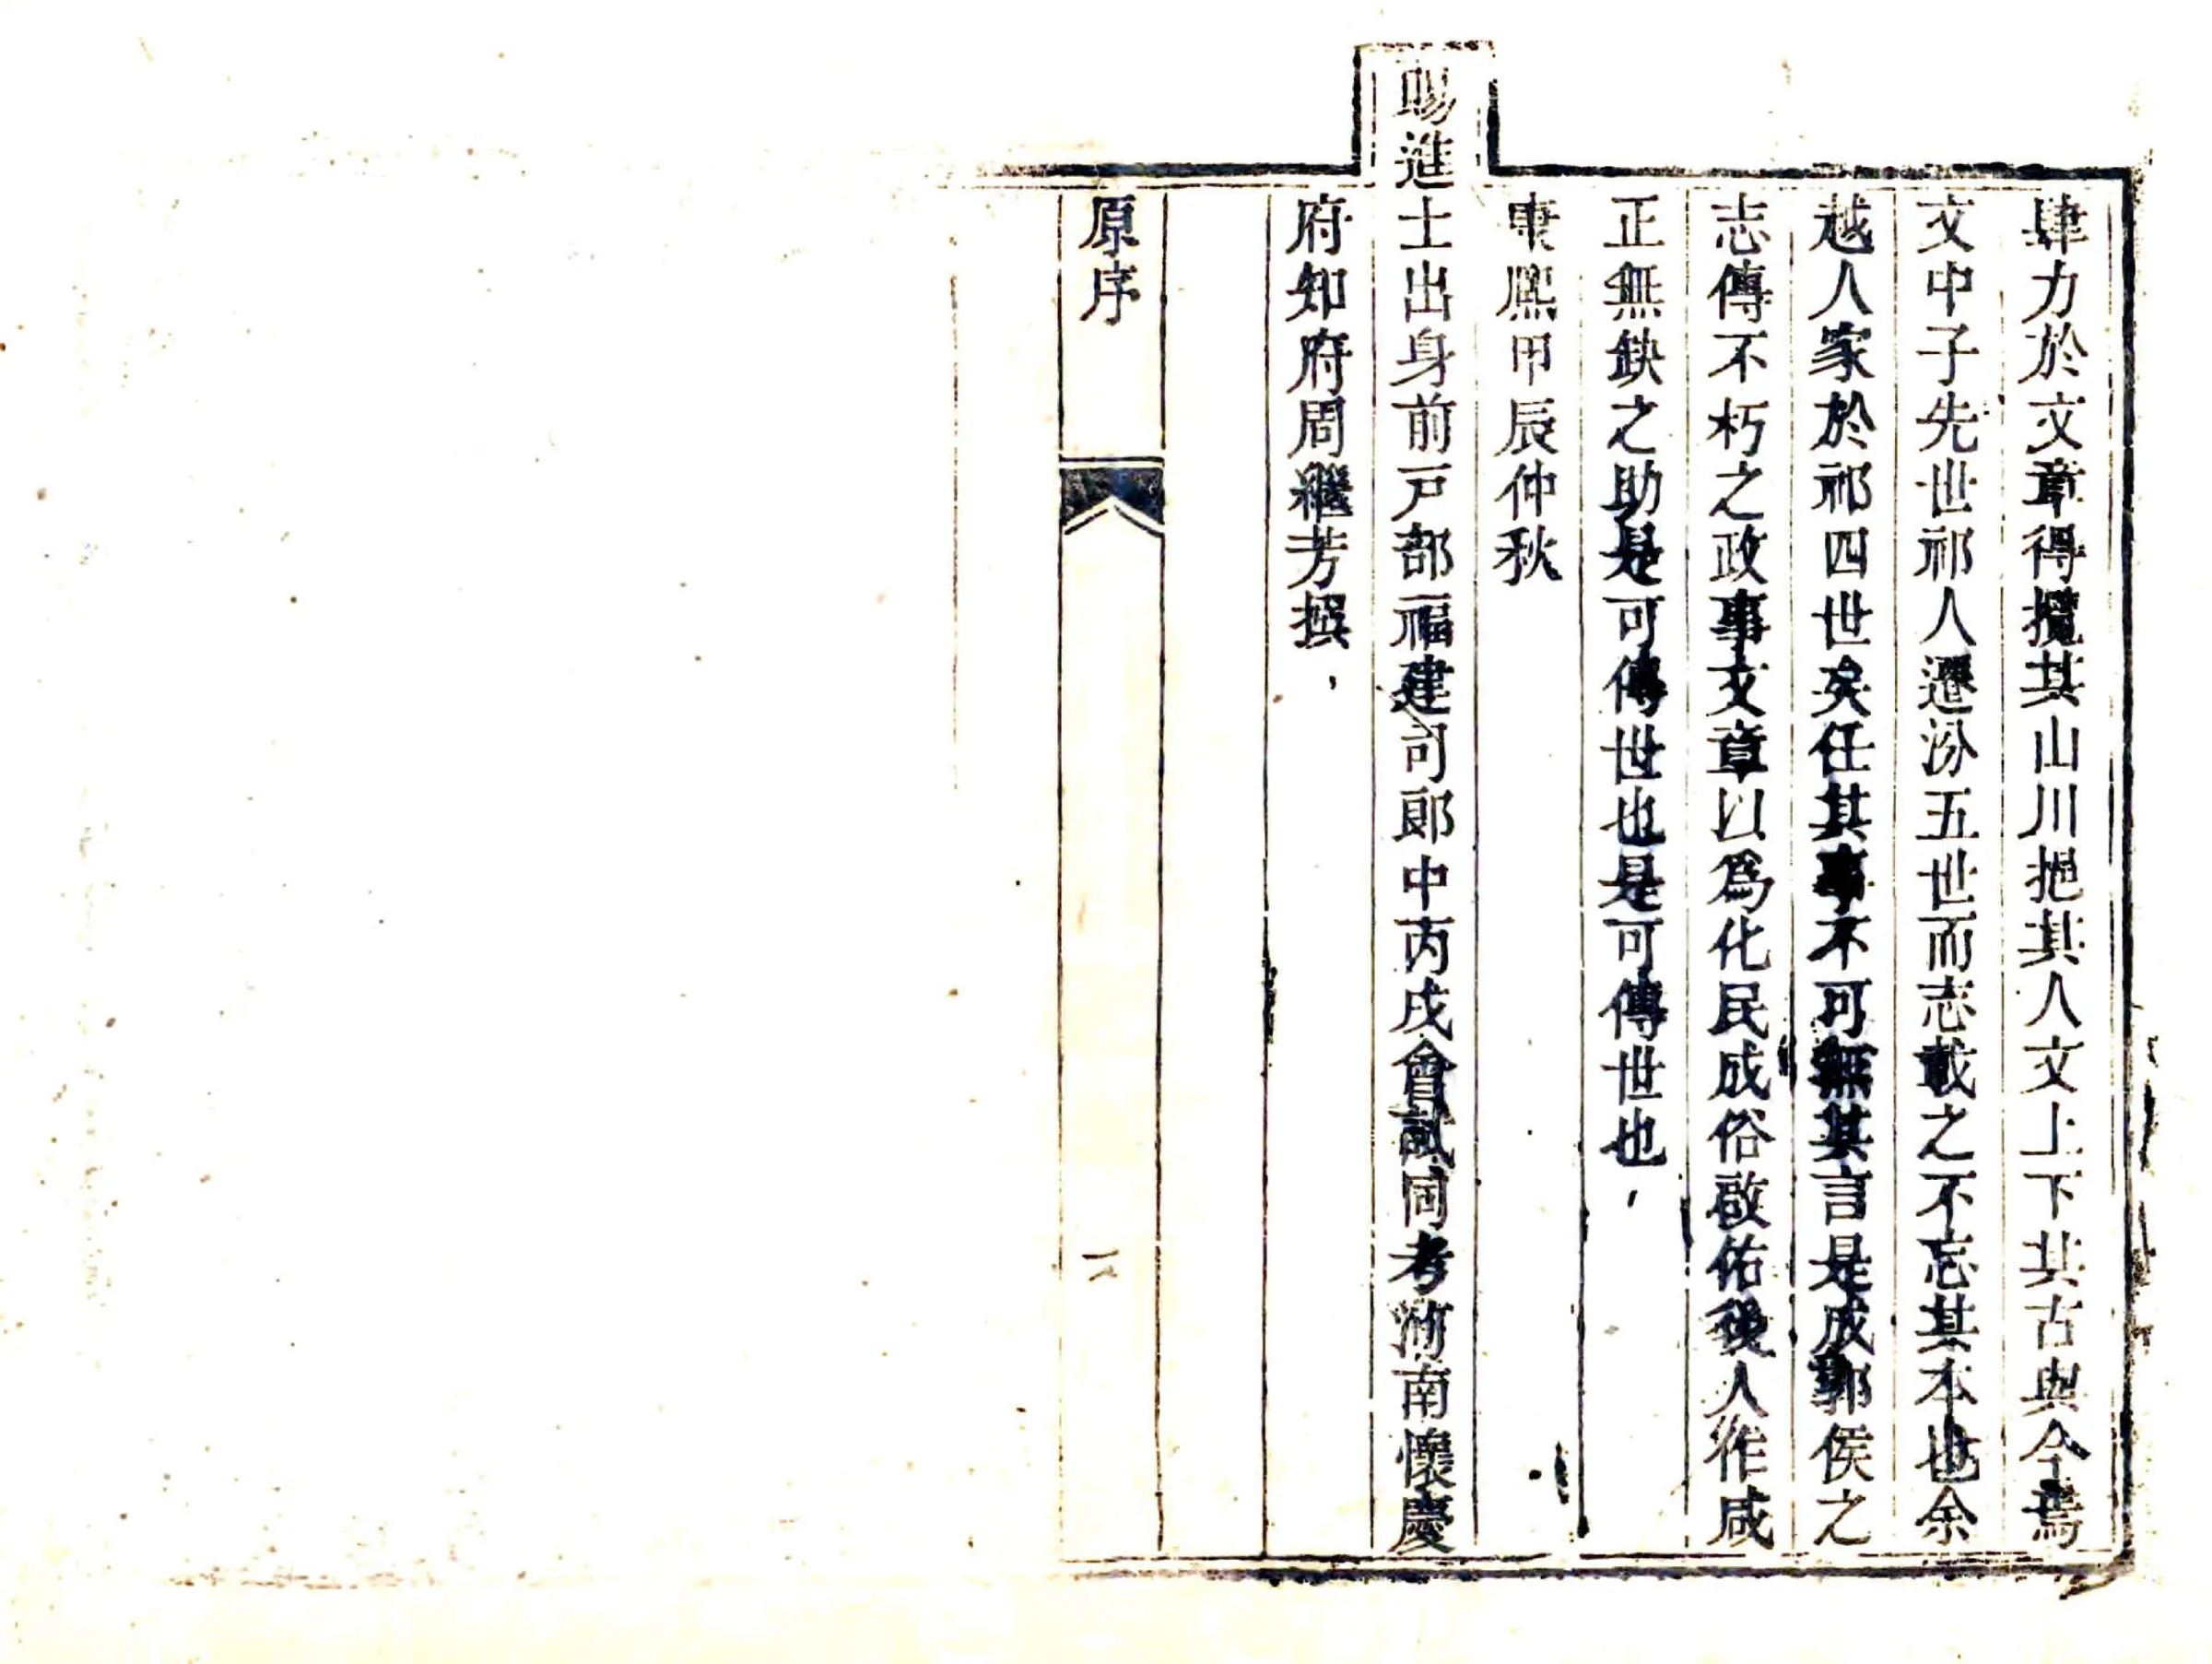 肆力於文章得攬其山川挹其人文上下其古與今焉
文中子先世祁人遷汾五世而志載之不忘其本也余
越人家於祁四世矣任其事不可無其言是成郭侯之
志傳不朽之政事文章以爲化民成俗啟佑後人作咸
正無缺之助是可傳世也是可傳世也
康熙甲辰仲秋
賜進士出身前戸部福建司郎中丙戌會試同考河南懷慶
府知府周繼芳撰
原序